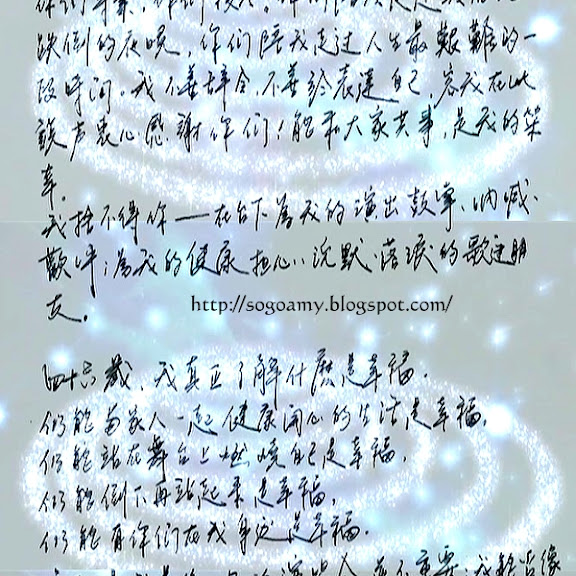 跌倒的夜晚，你们陪我走过人生最艱難的一
段时间。我不善辞令，不善於表達自己，容我在此
說声衷心感謝你们！能和大家共事，是我的榮
幸。
我捨不得你——在台下為我的演出鼓掌、吶喊、
歡呼；為我的健康担心、沉默、落淚的歌迷朋
友。
http://sogoamy.blogspot.com/
四十六歲，我真正了解什麽是幸福。
仍能与家人一起健康開心的生活是幸福，
仍能站在舞台上燃燒自己是幸福，
仍能倒下再站起来是幸福，
仍能有你们在我身边是幸福。